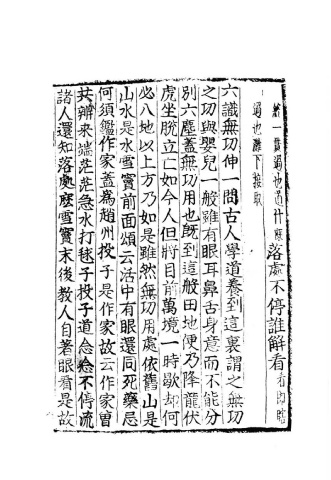 終一貫過也道什麼落處不停誰解看看即瞎
過也灘下接取
六識無功伸一問古人學道養到這裏謂之無功
之功與嬰兒一般雖有眼耳鼻舌身意而不能分
別六塵蓋無功用也既到這般田地便乃降龍伏
虎坐脫立亡如今人但將目前萬境一時歇却何
必八地以上方乃如是雖然無功用處依舊山是
山水是水雪竇前面頌云活中有眼還同死藥忌
何須鑑作家蓋為趙州投子是作家故云作家曾
共辨來端茫茫急水打毬子投子道念念不停流
諸人還知落處麼雪竇末後教人自著眼看是故